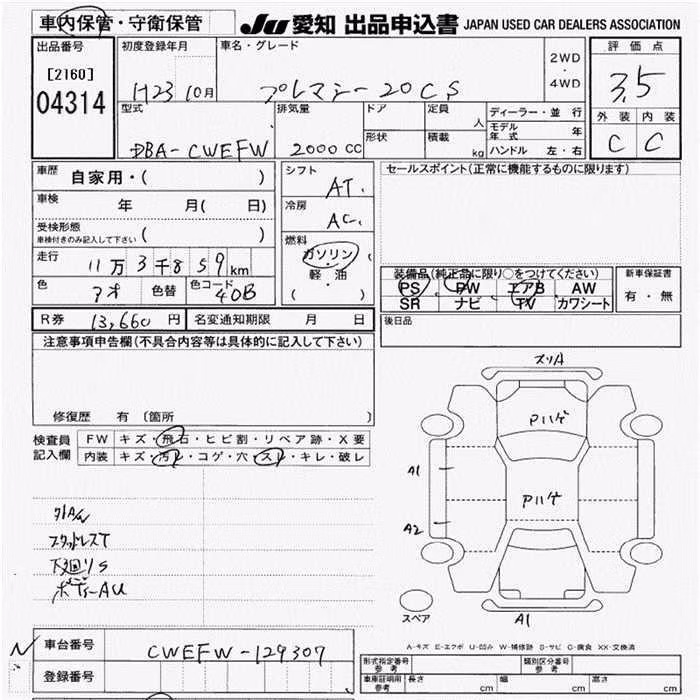 車内保管・守衛保管
JU 愛知 出品申込書 JAPAN USED CAR DEALERS ASSOCIATION
出品番号
[2160]
04314
初度登録年月
H23 10月
車名・グレード
プレマシー20CS
2WD
・
4WD
評価点
3.5
外装 内装
C C
型式
DBA-CWEFW
排気量
2000 CC
ドア
形状
定員
人
積載
kg
ディーラー・並行
モデル年式 年
ハンドル 左・右
車歴
自家用・( )
車検
年 月( 日)
受検形態
車検付きのみ記入して下さい ( )
走行
11万3千859km
色
アオ
色替
色コード
40B
シフト
AT.
冷房
AC.
燃料
ガソリン
・
軽油
( )
セールスポイント(正常に機能するものに限ります)
装備品(純正品に限り○をつけてください)
PS PW エアB AW
SR ナビ TV カワシート
新車保証書
有・無
後日品
R券 13,660円
名変通知期限 月 日
注意事項申告欄(不具合内容等は具体的に記入して下さい)
修復歴 有〔箇所
検査員
記入欄
FW キズ・飛石・ヒビ割・リペア跡・X要
内装 キズ・汚レ・コゲ・穴・スレ・キレ・破レ
スタッドレスT
下廻りS
ボディーAU
スリA
Pハゲ
Pハゲ
A1
A2
A1
スペア
A-キズ E-エクボ U-凹み W-補修跡 S-サビ C-腐食 XX-交換済
N
車台番号
CWEFW-129307
登録番号
形式指定番号
参考
類別区分番号
参考
車庫証明用
参考
長さ cm 幅 cm 高さ cm